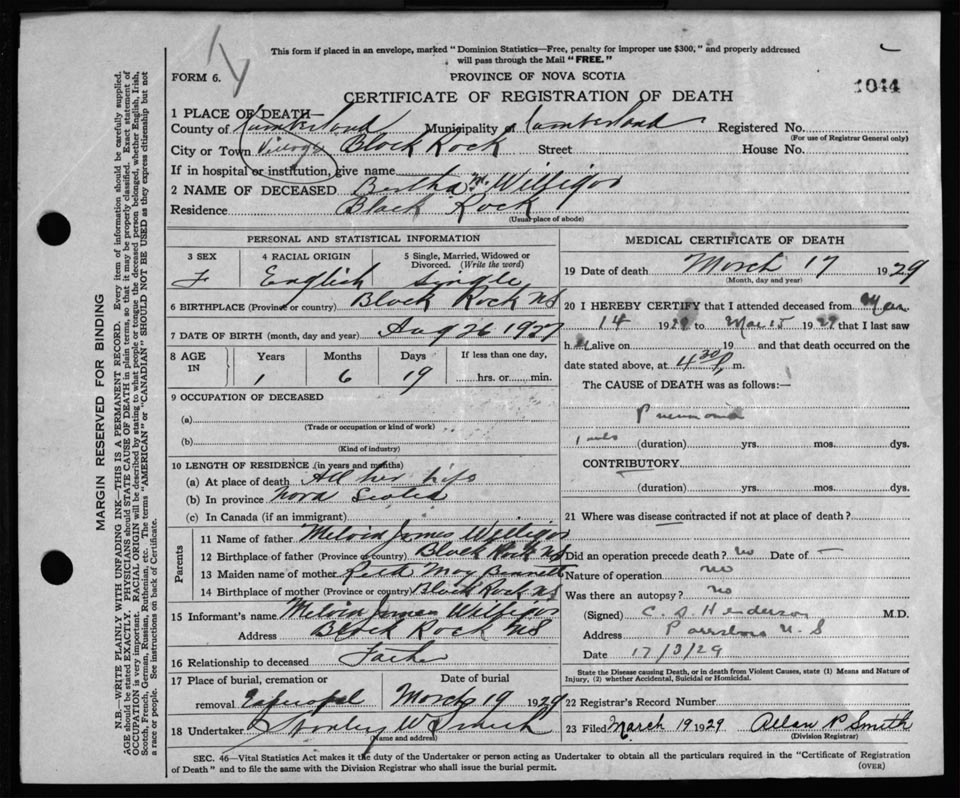 This form if placed in an envelope, marked "Dominion Statistics—Free, penalty for improper use $300," and properly addressed
will pass through the Mail "FREE."
FORM 6.
PROVINCE OF NOVA SCOTIA
1044
CERTIFICATE OF REGISTRATION OF DEATH
1 PLACE OF DEATH—
County of Cumberland Municipality of Cumberland Registered No.
(For use of Registrar General only)
City or Town Village Black Rock Street House No.
If in hospital or institution, give name
2 NAME OF DECEASED Bertha M. Willigar
Residence Black Rock
(Usual place of abode)
PERSONAL AND STATISTICAL INFORMATION
3 SEX 4 RACIAL ORIGIN 5 Single, Married, Widowed or Divorced. (Write the word)
F English Single
6 BIRTHPLACE (Province or country) Black Rock NS
7 DATE OF BIRTH (month, day and year) Aug 26 1927
8 AGE IN Years Months Days If less than one day,
1 6 19 hrs. or min.
9 OCCUPATION OF DECEASED
(a)
(Trade or occupation or kind of work)
(b)
(Kind of industry)
10 LENGTH OF RESIDENCE (in years and months)
(a) At place of death All her life
(b) In province Nova Scotia
(c) In Canada (if an immigrant)
Parents
11 Name of father Melvin James Willigar
12 Birthplace of father (Province or country) Black Rock NS
13 Maiden name of mother Ruth May Bennett
14 Birthplace of mother (Province or country) Black Rock NS
15 Informant's name Melvin James Willigar
Address Black Rock NS
16 Relationship to deceased Father
17 Place of burial, cremation or removal Date of burial
March 19 1929
18 Undertaker
(Name and address)
MEDICAL CERTIFICATE OF DEATH
19 Date of death March 17 1929
(Month, day and year)
20 I HEREBY CERTIFY that I attended deceased from Mar
14 1929 to Mar 15 1929 that I last saw
h er alive on 19 and that death occurred on the
date stated above, at 4 30 P. m.
The CAUSE of DEATH was as follows:—
Pneumonia
(duration) yrs. mos. dys.
CONTRIBUTORY
(duration) yrs. mos. dys.
21 Where was disease contracted if not at place of death?
Did an operation precede death? no Date of —
Nature of operation no
Was there an autopsy? no
(Signed) C. S. Henderson M.D.
Address Parrsboro N.S
Date 17/3/29
State the Disease causing Death, or in death from Violent Causes, state (1) Means and Nature of
Injury, (2) whether Accidental, Suicidal or Homicidal.
22 Registrar's Record Number
23 Filed March 19 1929 Allan P Smith
(Division Registrar)
SEC. 46—Vital Statistics Act makes it the duty of the Undertaker or person acting as Undertaker to obtain all the particulars required in the "Certificate of Registration
of Death" and to file the same with the Division Registrar who shall issue the burial permit.
(OVER)
MARGIN RESERVED FOR BINDING
N.B.—WRITE PLAINLY WITH UNFADING INK—THIS IS A PERMANENT RECORD. Every item of information should be carefully supplied.
AGE should be stated EXACTLY. PHYSICIANS should STATE CAUSE OF DEATH in plain terms, so that it may be properly classified. Exact statement of
OCCUPATION is very important. RACIAL ORIGIN will be described by stating to what people or tongue the deceased person belonged, whether English, Irish,
Scotch, French, German, Russian, Ruthenian, etc. The terms "AMERICAN" or "CANADIAN" SHOULD NOT BE USED as they express citizenship but not
a race or people. See instructions on back of Certificate.